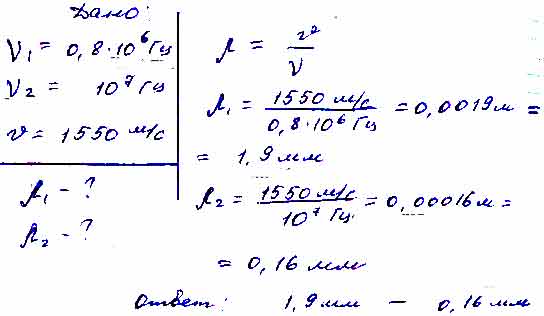 Дано:
ν₁ = 0,8·10⁶ Гц
ν₂ = 10⁷ Гц
v = 1550 м/с
λ₁ - ?
λ₂ - ?
λ = v/ν
λ₁ = 1550 м/с / 0,8·10⁶ Гц = 0,0019 м =
= 1,9 мм
λ₂ = 1550 м/с / 10⁷ Гц = 0,00016 м =
= 0,16 мм
Ответ: 1,9 мм – 0,16 мм